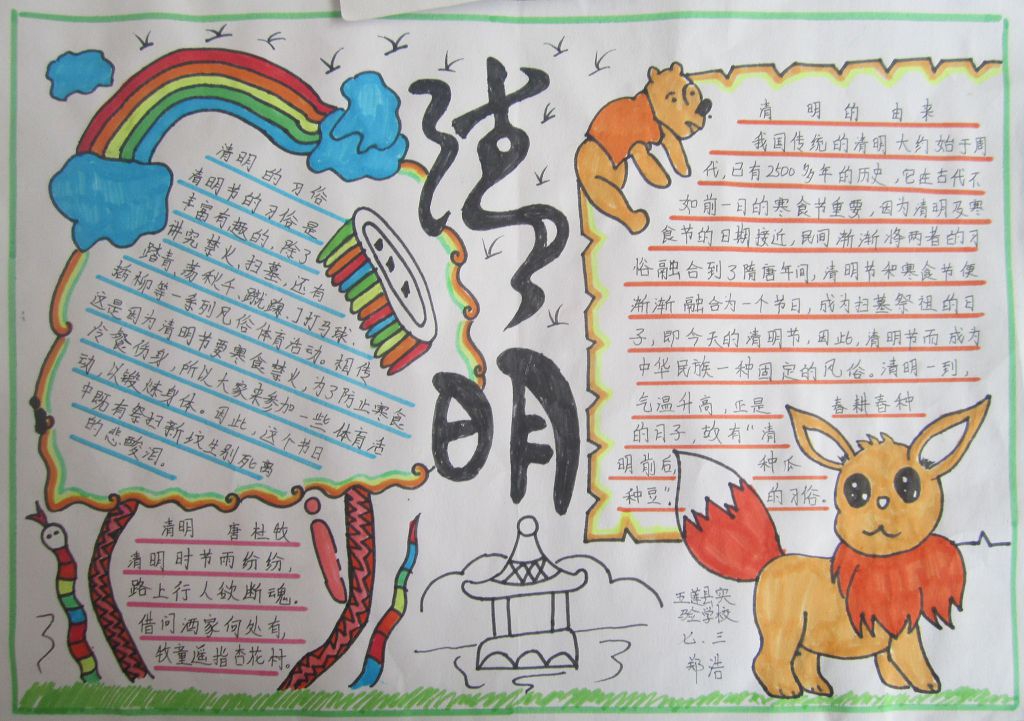 清明
清明的习俗
清明节的习俗是
丰富有趣的，除了
讲究禁火、扫墓，还有
踏青、荡秋千、蹴鞠、打马球、
插柳等一系列风俗体育活动。相传
这是因为清明节要寒食禁火，为了防止寒食
冷餐伤身，所以大家来参加一些体育活
动，以锻炼身体。因此，这个节日
中既有祭扫新坟生别死离
的悲酸泪。
清明 唐 杜牧
清明时节雨纷纷，
路上行人欲断魂。
借问酒家何处有，
牧童遥指杏花村。
清明的由来
我国传统的清明大约始于周
代，已有2500多年的历史，它在古代不
如前一日的寒食节重要，因为清明及寒
食节的日期接近，民间渐渐将两者的习
俗融合到了隋唐年间，清明节和寒食节便
渐渐融合为一个节日，成为扫墓祭祖的日
子，即今天的清明节，因此，清明节而成为
中华民族一种固定的风俗。清明一到，
气温升高，正是春耕春种
的日子，故有“清
明前后，种瓜
种豆”。的习俗。
五莲县实
验学校
七.三
郑浩